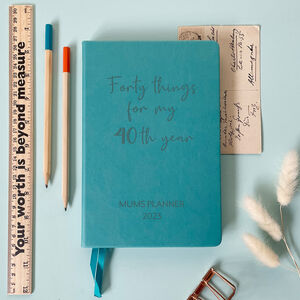 Your worth is beyond measure
Forty things
for my
40th year
MUMS PLANNER
2023